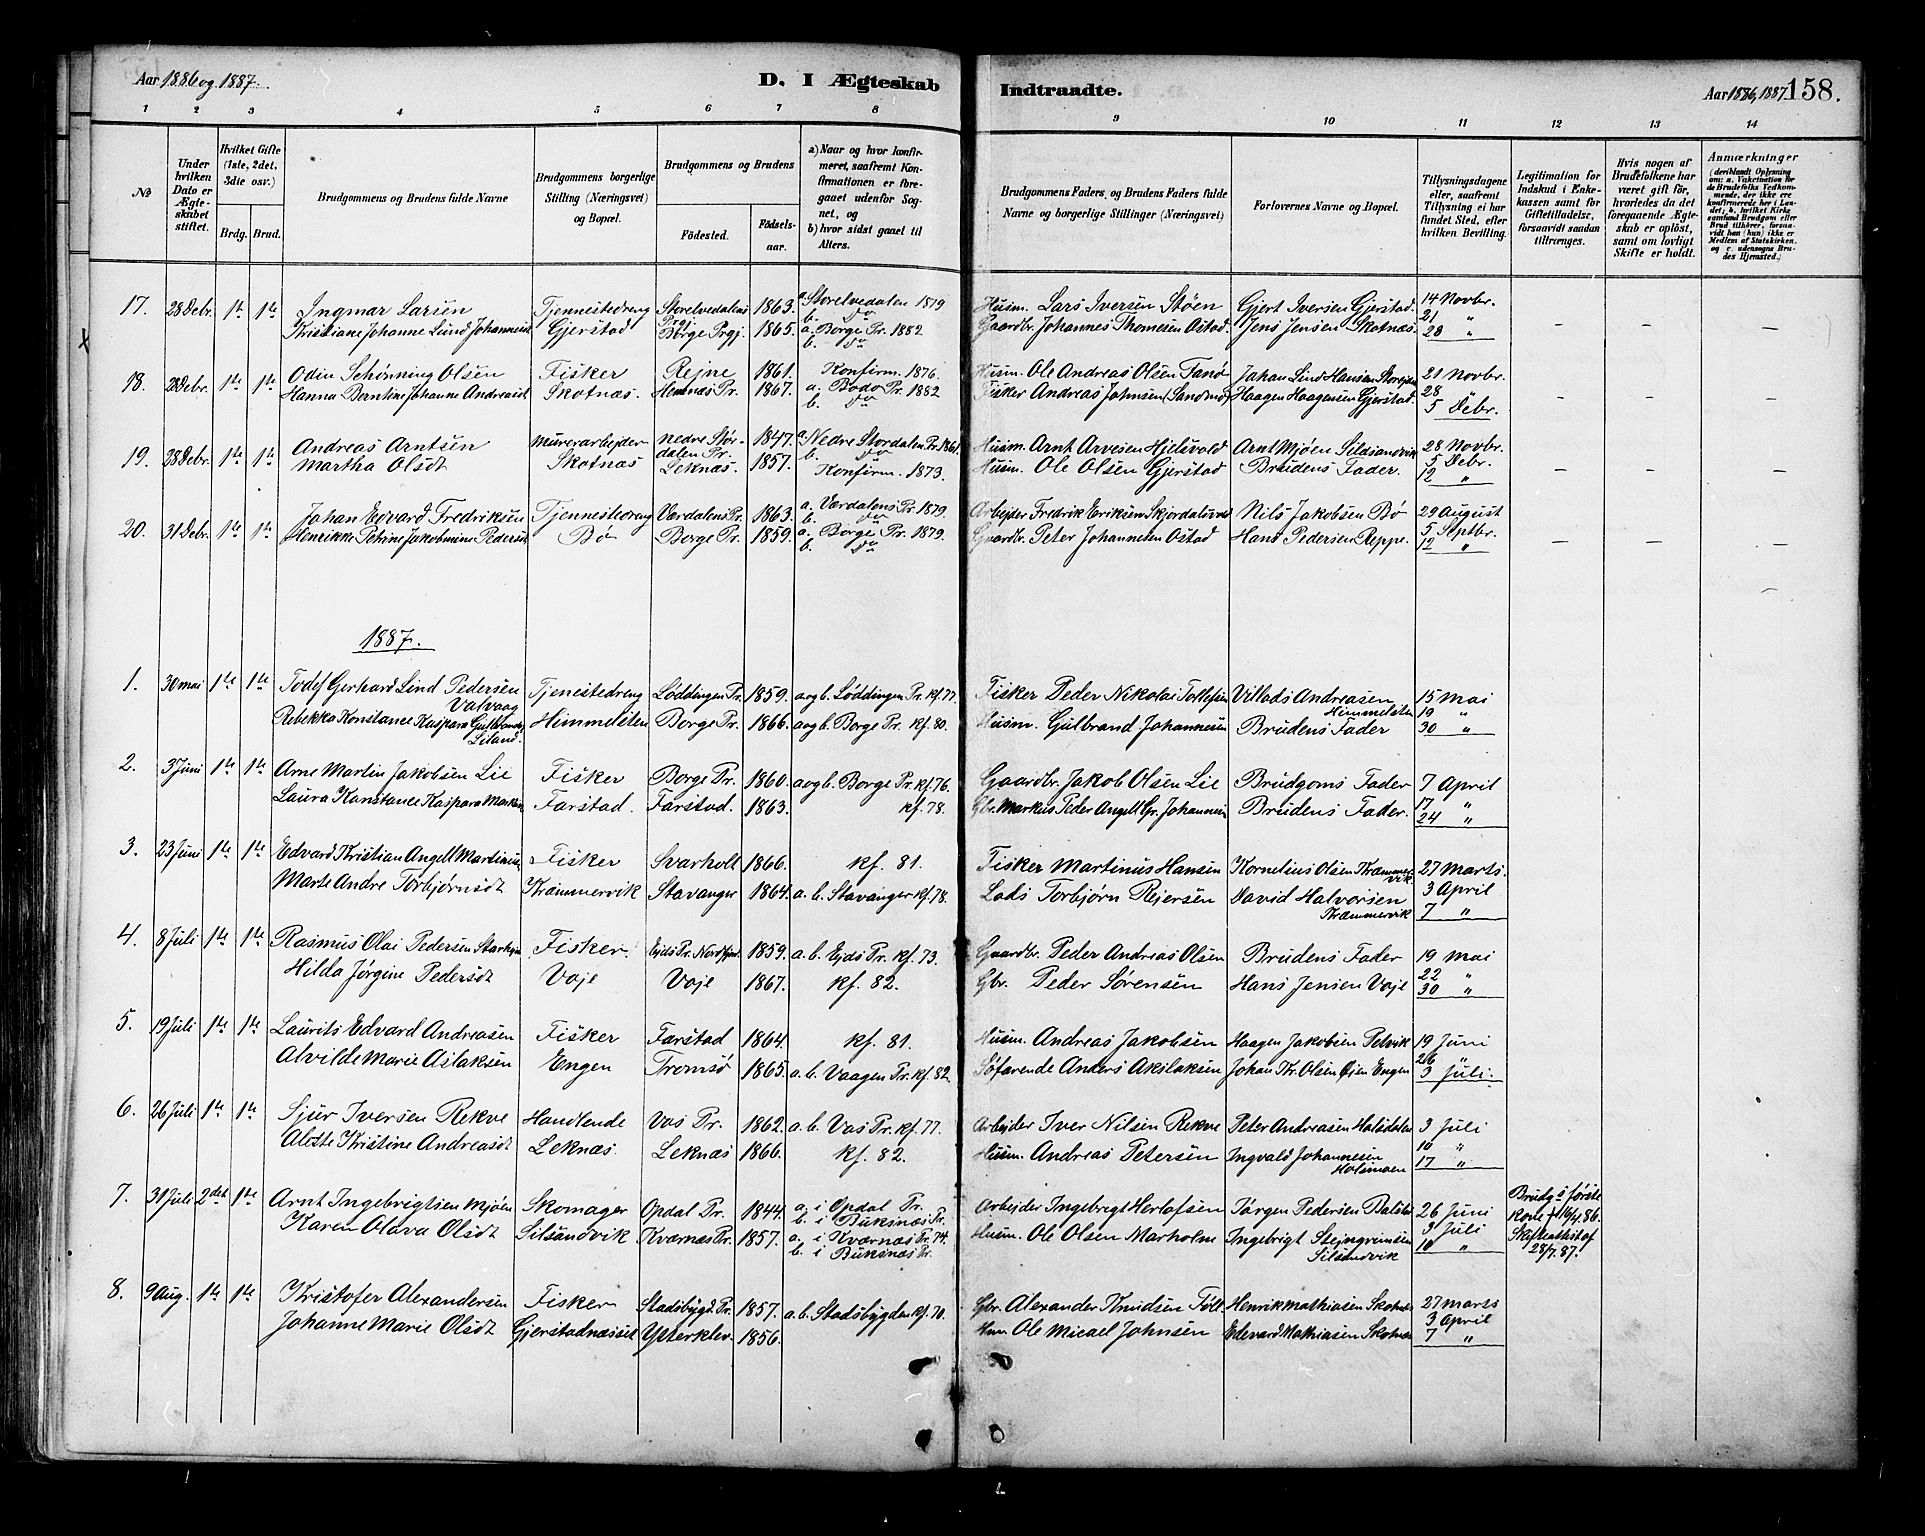 Aar 1886 og 1887.
D. I Ægteskab
Indtraadte.
Aar 1886, 1887
158.
1 2 3 4 5 6 7 8
9 10 11 12 13 14
No
Under hvilken Dato er Ægteskabet stiftet.
Hvilket Gifte (1ste, 2det, 3die osv.)
Brdg. Brud.
Brudgommens og Brudens fulde Navne
Brudgommens borgerlige Stilling (Næringsvei) og Bopæl.
Brudgommens og Brudens
Fødested.
Fødselsaar.
a) Naar og hvor konfirmeret, saafremt Konfirmationen er foregaaet udenfor Sognet, og
b) hvor sidst gaaet til Alters.
Brudgommens Faders, og Brudens Faders fulde Navne og borgerlige Stillinger (Næringsvei)
Forlovernes Navne og Bopæl.
Tillysningsdagene eller, saafremt Tillysning ei har fundet Sted, efter hvilken Bevilling.
Legitimation for Indskud i Enkekassen samt for Giftetilladelse, forsaavidt saadan tiltrænges.
Hvis nogen af Brudefolkene har været gift før, hvorledes da det foregaaende Ægteskab er opløst, samt om lovligt Skifte er holdt.
Anmærkninger
17. 28 Debr. 1te 1te Ingmar Larsen Tjennestedreng Storelvedalens Prgj. 1863. a. Storelvedalen 1879 b. do Husm. Lars Iversen Støen Gjert Iversen Gjerstad. 14 Novbr.
Kristiane Johanne Lund Johannesd. Gjerstad Borge Prgj. 1865. a. Borge Pr. 1882 b. do Gaardbr. Johannes Thomesen Ostad. Jens Jensen Skotnæs. 21 " 28 " – – –
18. 28 Debr. 1te 1te Odin Schønning Olsen Fisker Rejne 1861. Konfirm. 1876. Husm. Ole Andreas Olsen Tand Johan Lind Hansen 21 Novbr.
Hanna Berntine Johanne Andreasd. Skotnæs. Hemnæs Pr. 1867. a. Bodø Pr. 1882 b. do Fisker Andreas Johnsen (Sandmo) Haagen Haagensen Gjerstad. 28 5 Debr. – – –
19. 28 Debr. 1te 1te Andreas Arntsen Murerarbejder Nedre Størdalen Pr. 1847. a. Nedre Stordalen Pr. 1861. b. do Husm. Arnt Arvesen Hjelsvold Arnt Mjøen Silsandvik 28 Novbr.
Martha Olsdt Skotnæs Leknæs. 1857. Konfirm. 1873. Husm. Ole Olsen Gjerstad Brudens Fader. 5 Debr. 12 " – – –
20. 31 Debr. 1te 1te Johan Edvard Fredriksen Tjennestedreng Værdalens Pr. 1863. a. Værdalens Pr. 1879. b. do Arbejder Fredrik Eriksen Nils Jakobsen Bø 29 August
Henrikke Petrine Jakobmine Pedersd. Bø Borge Pr. 1859. a. Borge Pr. 1879. b. do Gaardbr. Peter Johannesen Ostad Hans Pedersen Reppe. 5 Septbr. 12 " – – –
1887.
1. 30 Mai 1te 1te Todef Gerhard Lind Pedersen Valvaag Tjenestedreng Løddingen Pr. 1859. a og b. Løddingen Pr. kf. 77. Fisker Peder Nikolai Tollefsen Villads Andreasen Himmelsten 15 Mai
Rebekka Konstance Kaspara Gulbrandsd. Liland. Himmelsten Borge Pr. 1866. a og b. Borge Pr. kf. 80. Husm. Gulbrand Johannesen Brudens Fader 19 " 30 "
2. 3 Juni 1te 1te Arne Martin Jakobsen Lie Fisker Borge Pr. 1860. a og b. Borge Pr. kf. 76. Gaardbr. Jakob Olsen Lie Brudgoms Fader 7 April
Laura Konstance Kaspara Markus. Farstad. Farstad. 1863. kf. 78. Gbr. Markus Peder Angell Gr. Johannesen Brudens Fader. 17 " 24 "
3. 23 Juni 1te 1te Edvard Kristian Angell Martinus. Fisker Svarholt 1866. kf. 81. Fisker Martinus Hansen Kornelius Olsen Kræmmervik 27 Marts.
Marte Andre Torbjørnsdt Kræmmervik Stavanger 1864. a. b. Stavanger kf. 78. Lods Torbjørn Rejersen David Halvorsen Kræmmervik 3 April 7 "
4. 8 Juli 1te 1te Rasmus Olai Pedersen Fisker Ejds Pr. Nordfjord. 1859. a. b. Ejds Pr. kf. 73. Gaardbr. Peder Andreas Olsen Brudens Fader 19 Mai
Hilda Jørgine Pedersdt Voje Voje 1867. kf. 82. Gbr. Peder Sørensen Hans Jensen Voje 22 30 "
5. 19 Juli 1te 1te Laurits Edvard Andreasen Fisker Farstad 1864. kf. 81. Husm. Andreas Jakobsen Haagen Jakobsen Petvik 19 Juni
Alvilde Marie Aslaksen Engen Tromsø 1865. a. b. Vaagen Pr. kf. 82. Søfarende Anders Akslaksen Johan Kr. Olsen Øien Engen 26 " 3 Juli.
6. 26 Juli 1te 1te Sjur Iversen Rekve Handlende Vos Pr. 1862. a. b. Vos Pr. kf. 77. Arbejder Iver Nilsen Rekve Peter Andreasen Halsdalen 3 Juli
Alette Kristine Andreasdt Leknæs. Leknæs 1866. kf. 82. Husm. Andreas Petersen Ingvald Johannesen Holsmoen 10 " 17 "
7. 31 Juli 2det 1te Arnt Ingebrigtsen Mjøen Skomager Opdal Pr. 1844. a. i Opdal Pr. b. i Buksnæs Pr. Arbejder Ingebrigt Herlofsen Jørgen Pedersen 26 Juni Brudg. s første Kone † 16/4 86.
Karen Olava Olsdt Silsandvik Kværnæs Pr. 1857. a. i Kværnæs Pr. 74. b. i Buksnæs Pr. Husm. Ole Olsen Marholm Ingebrigt Stejngrimsen Silsandvik 3 Juli 10 " Skifteattest af 28/7. 87.
8. 9 Aug. 1te 1te Kristofer Alexandersen Fisker Stadsbygd. Pr. 1857. a. b. Stadsbygden kf. 70. Gbr. Alexander Knudsen Henrik Mathiasen Skotnæs 27 Marts
Johanne Marie Olsdt Gjerstadnæsset Ytterklev. 1856. Husm. Ole Micael Johnsen Edevard Mathiasen Skotnæs 3 April 7 "